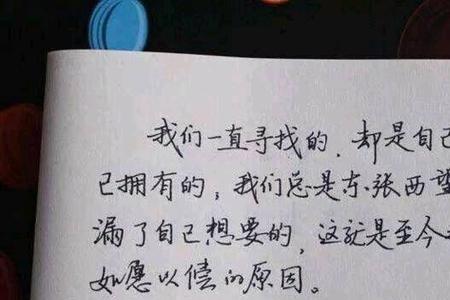 我们一直寻找的，却是自己
已拥有的；我们总是东张西望
漏了自己想要的，这就是至今
如愿以偿的原因。